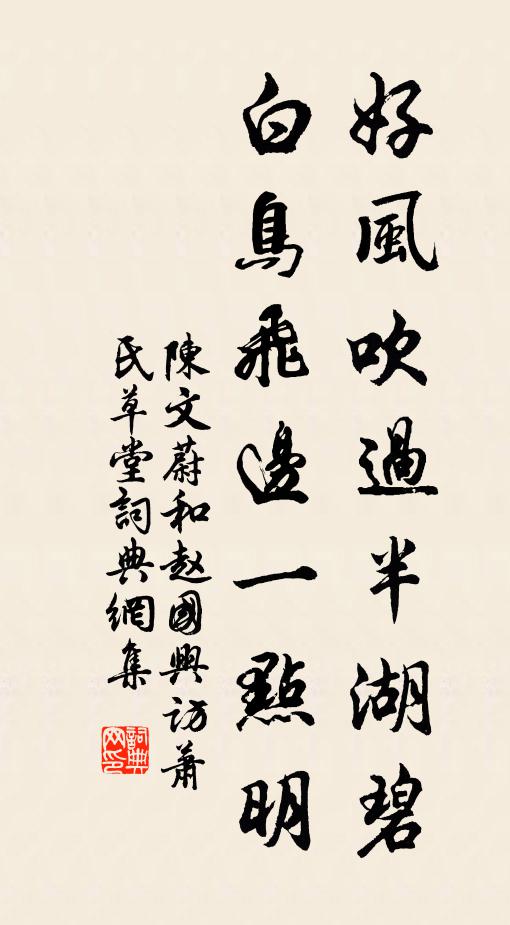 好風吹過半湖碧
白鳥飛邊一點明
陳文蔚和赵國興訪蕭
民草堂詞典網集
詞典
网印